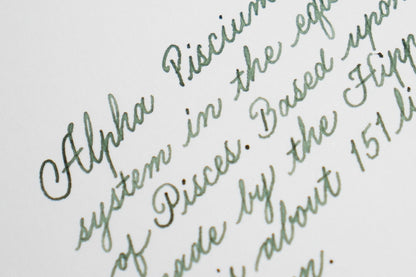 Alpha Piscium
system in the equ
of Pisces. Based upon
made by the Hipp
about 151 li